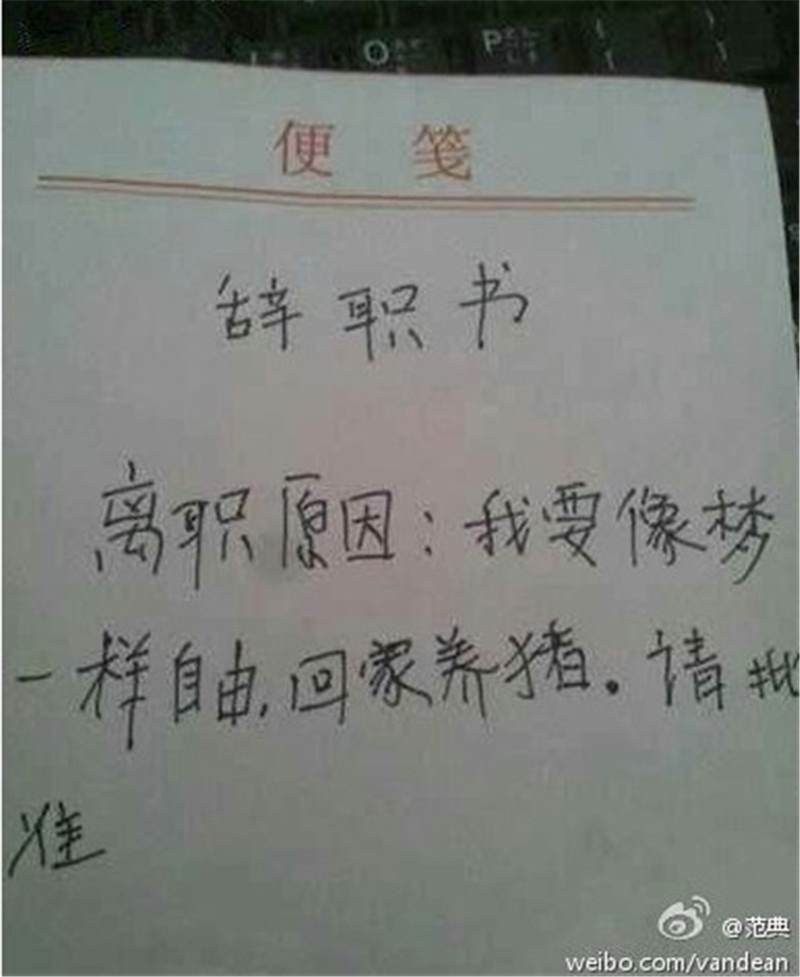 O
P
便 笺
辞职书
离职原因：我要像梦
一样自由，回家养猪。请批
准
@范典
weibo.com/vandean